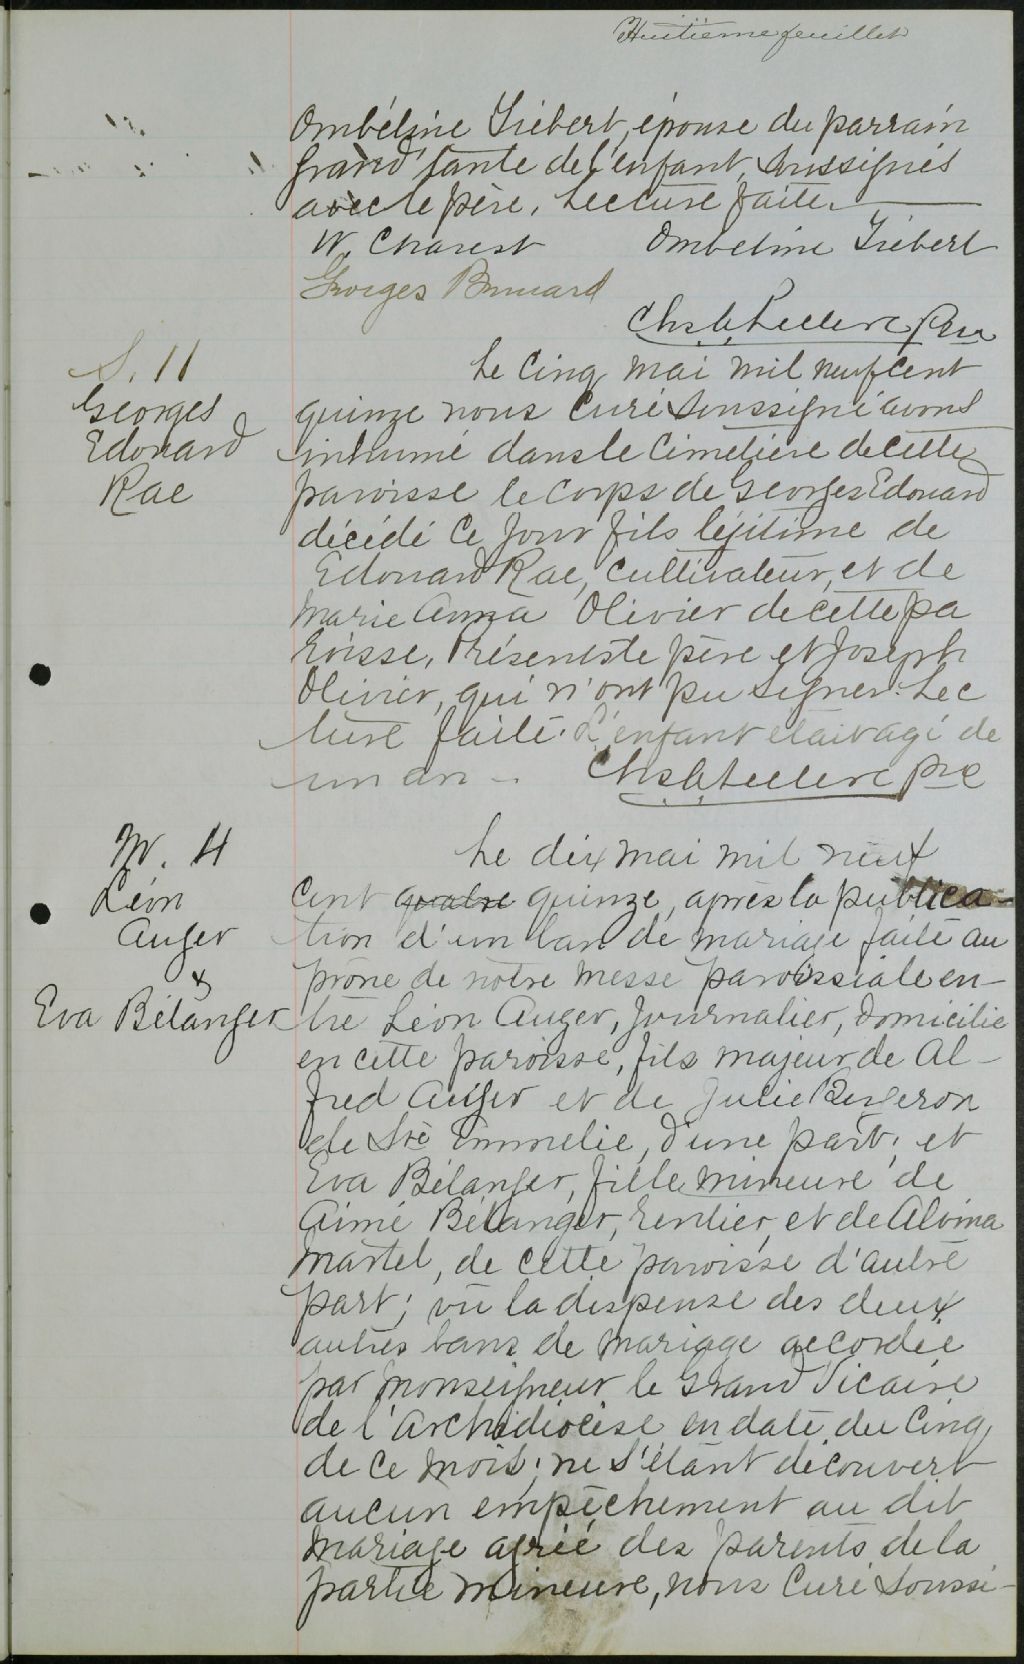 Huitième feuillet
Ombéline Trébert, épouse du parrain
grand'tante de l'enfant, soussignés
avec le père. Lecture faite.
W. Charest Ombeline Trébert
Georges
Chs. Leclerc Ptre
S. 11
Georges
Edouard
Rae
Le cinq mai mil neuf cent
quinze nous curé soussigné avons
inhumé dans le cimetière de cette
paroisse le corps de Georges Edouard
décédé ce jour fils légitime de
Edouard Rae, cultivateur, et de
Marie Anna Olivier de cette pa
roisse. Présents le père et Joseph
Olivier, qui n'ont pu signer. Lec
ture faite. L'enfant était agé de
un an -. Leclerc ptre
M. 4
Léon
Auger
&
Eva Bélanger
Le dix mai mil neuf
cent quatre quinze, après la publica-
tion d'un ban de mariage faite au
prône de notre messe paroissiale en-
tre Léon Auger, journalier, domicilié
en cette paroisse, fils majeur de Al-
fred Auger et de Julie Bergeron
de Ste Emmelie, d'une part; et
Eva Bélanger, fille mineure de
Aimé Bélanger, rentier, et de Alvina
Martel, de cette paroisse d'autre
part; vu la dispense des deux
autres bans de mariage accordée
par Monseigneur le Grand Vicaire
de l'Archidiocèse en date du cinq
de ce mois; ne s'étant découvert
aucun empêchement au dit
mariage agréé des parents de la
partie mineure, nous Curé soussi-